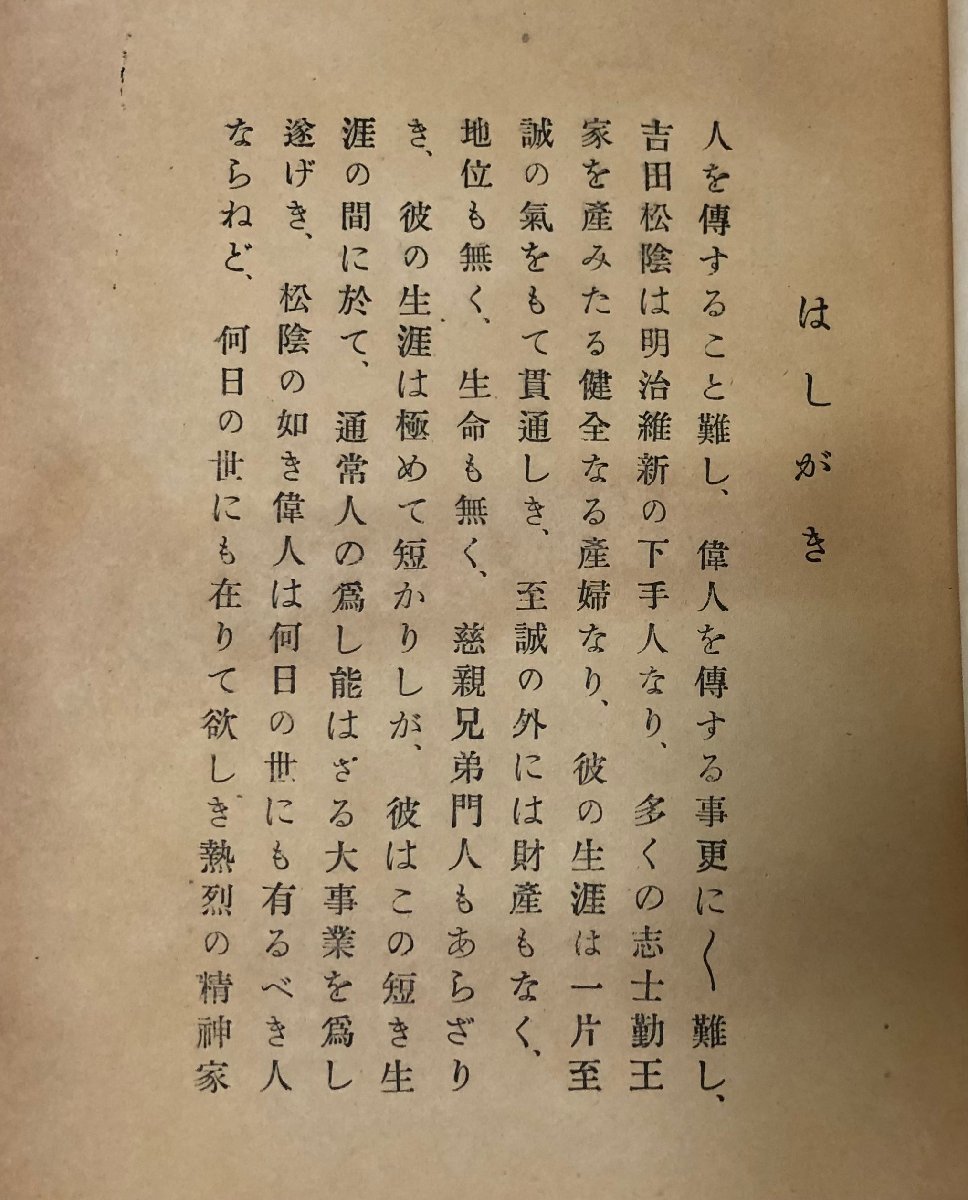 はしがき
人を傳すること難し、偉人を傳する事更に〱難し、
吉田松陰は明治維新の下手人なり、多くの志士勤王
家を產みたる健全なる產婦なり、彼の生涯は一片至
誠の氣をもて貫通しき、至誠の外には財產もなく、
地位も無く、生命も無く、慈親兄弟門人もあらざり
き、彼の生涯は極めて短かりしが、彼はこの短き生
涯の間に於て、通常人の爲し能はざる大事業を爲し
遂げき、松陰の如き偉人は何日の世にも有るべき人
ならねど、何日の世にも在りて欲しき熱烈の精神家